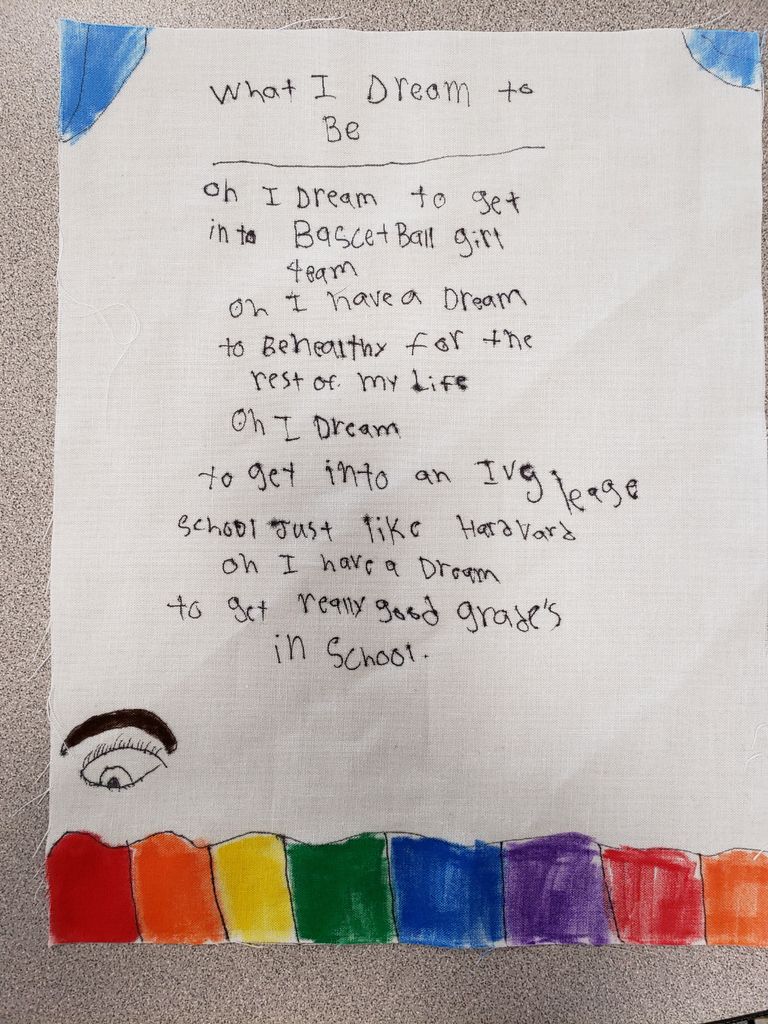 What I Dream to
Be
Oh I Dream to get
into BascetBall girl
team
Oh I have a Dream
to Behealthy for the
rest of my Life
Oh I Dream
to get into an Ivy leage
School Just like Hardvard
Oh I have a Dream
to get really good grade's
in School.